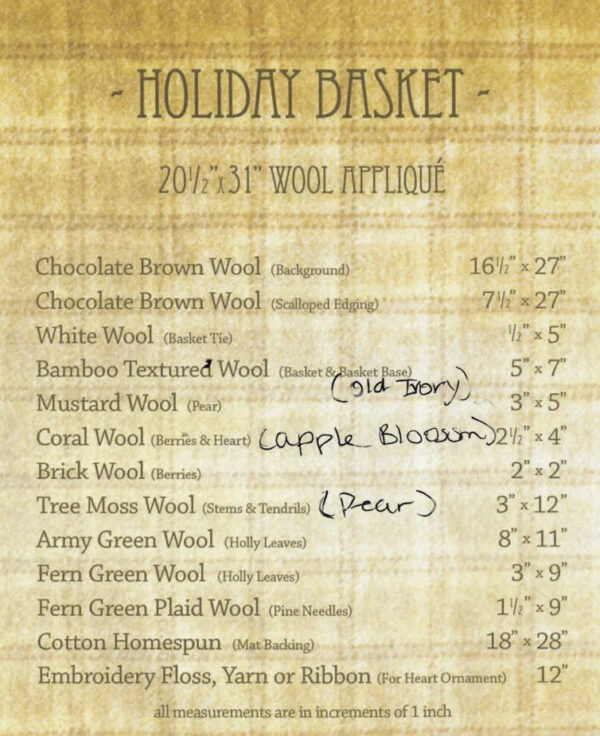 - HOLIDAY BASKET -
20½"x31" WOOL APPLIQUÉ
Chocolate Brown Wool (Background) 16½" x 27"
Chocolate Brown Wool (Scalloped Edging) 7½" x 27"
White Wool (Basket Tie) ½" x 5"
Bamboo Textured Wool (Basket & Basket Base) 5" x 7"
(old Ivory)
Mustard Wool (Pear) 3" x 5"
Coral Wool (Berries & Heart) (apple Blossom) 2½" x 4"
Brick Wool (Berries) 2" x 2"
Tree Moss Wool (Stems & Tendrils) (Pear) 3" x 12"
Army Green Wool (Holly Leaves) 8" x 11"
Fern Green Wool (Holly Leaves) 3" x 9"
Fern Green Plaid Wool (Pine Needles) 1½" x 9"
Cotton Homespun (Mat Backing) 18" x 28"
Embroidery Floss, Yarn or Ribbon (For Heart Ornament) 12"
all measurements are in increments of 1 inch